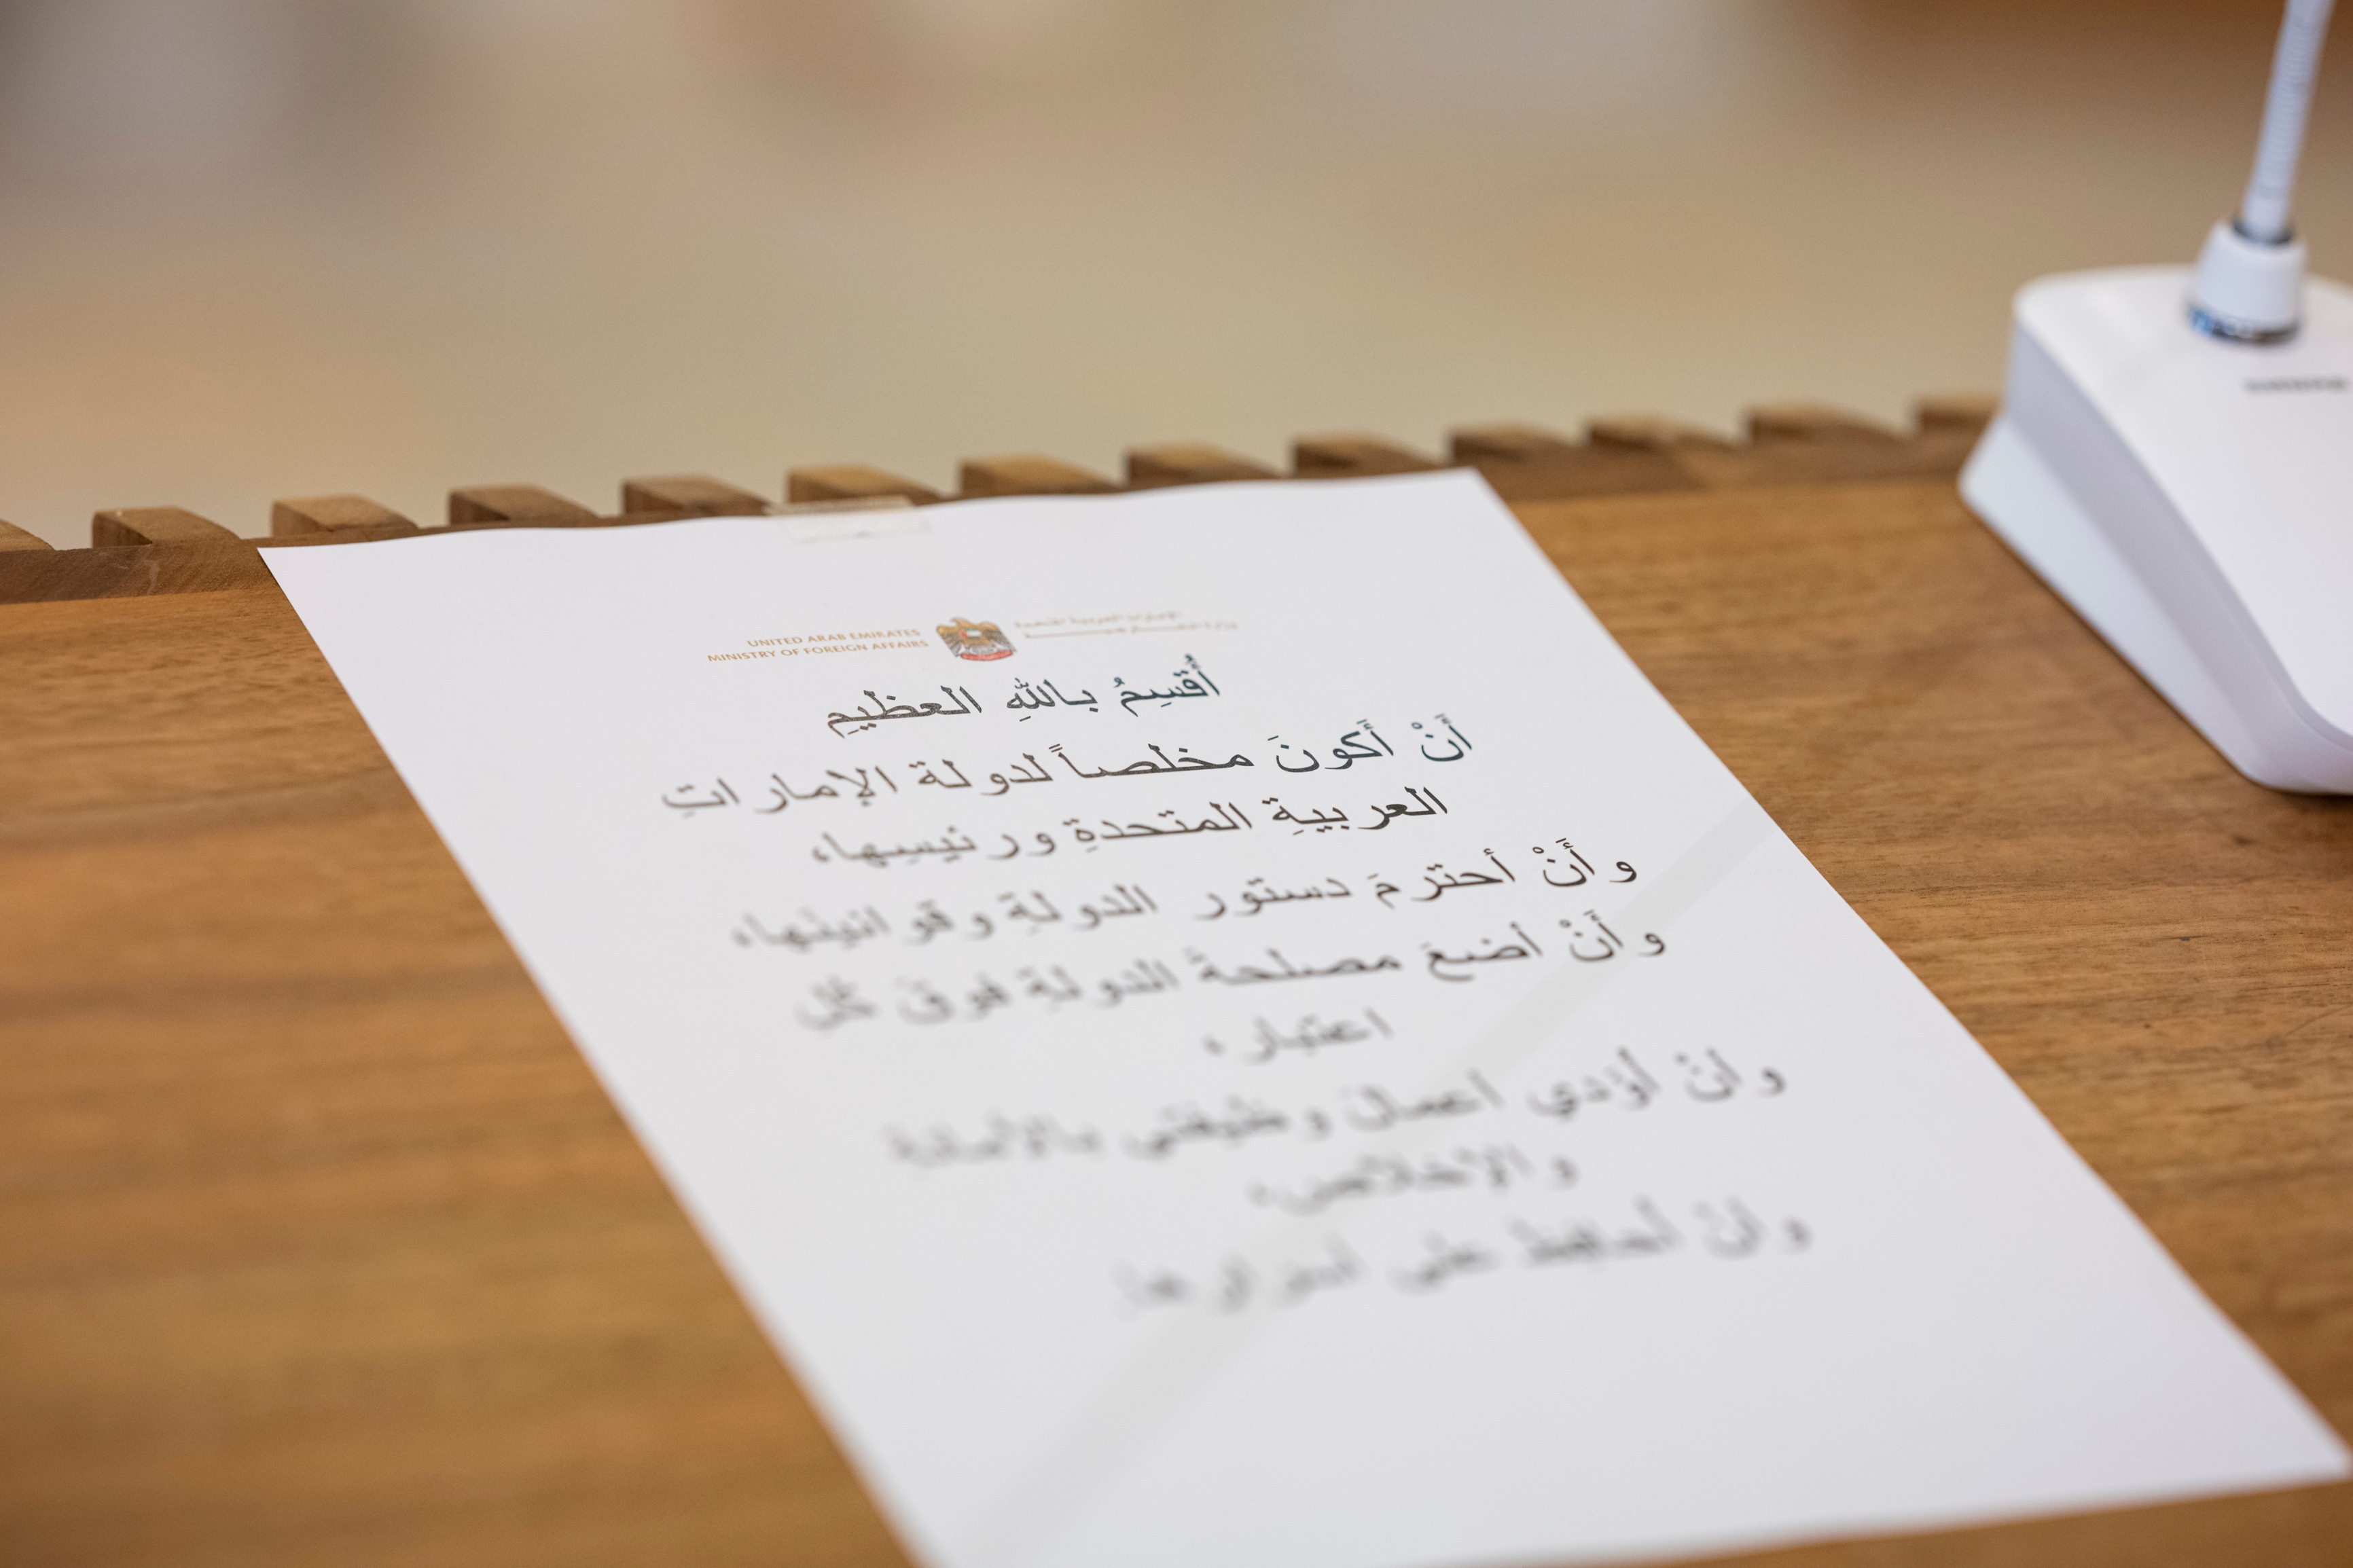 UNITED ARAB EMIRATES
MINISTRY OF FOREIGN AFFAIRS
الإمارات العربية المتحدة
وزارة الخارجية
أُقسِمُ باللهِ العظيمِ
أَنْ أَكونَ مخلصاً لدولة الإماراتِ
العربيةِ المتحدةِ ورئيسِها،
وأَنْ أحترمَ دستور الدولةِ وقوانينَها،
وأَنْ أضعَ مصلحةَ الدولةِ فوقَ كلِ
اعتبار،
وأنْ أؤدي أعمالَ وظيفتي بالأمانةِ
والإخلاصِ،
وأنْ أحافِظَ على أسرارها